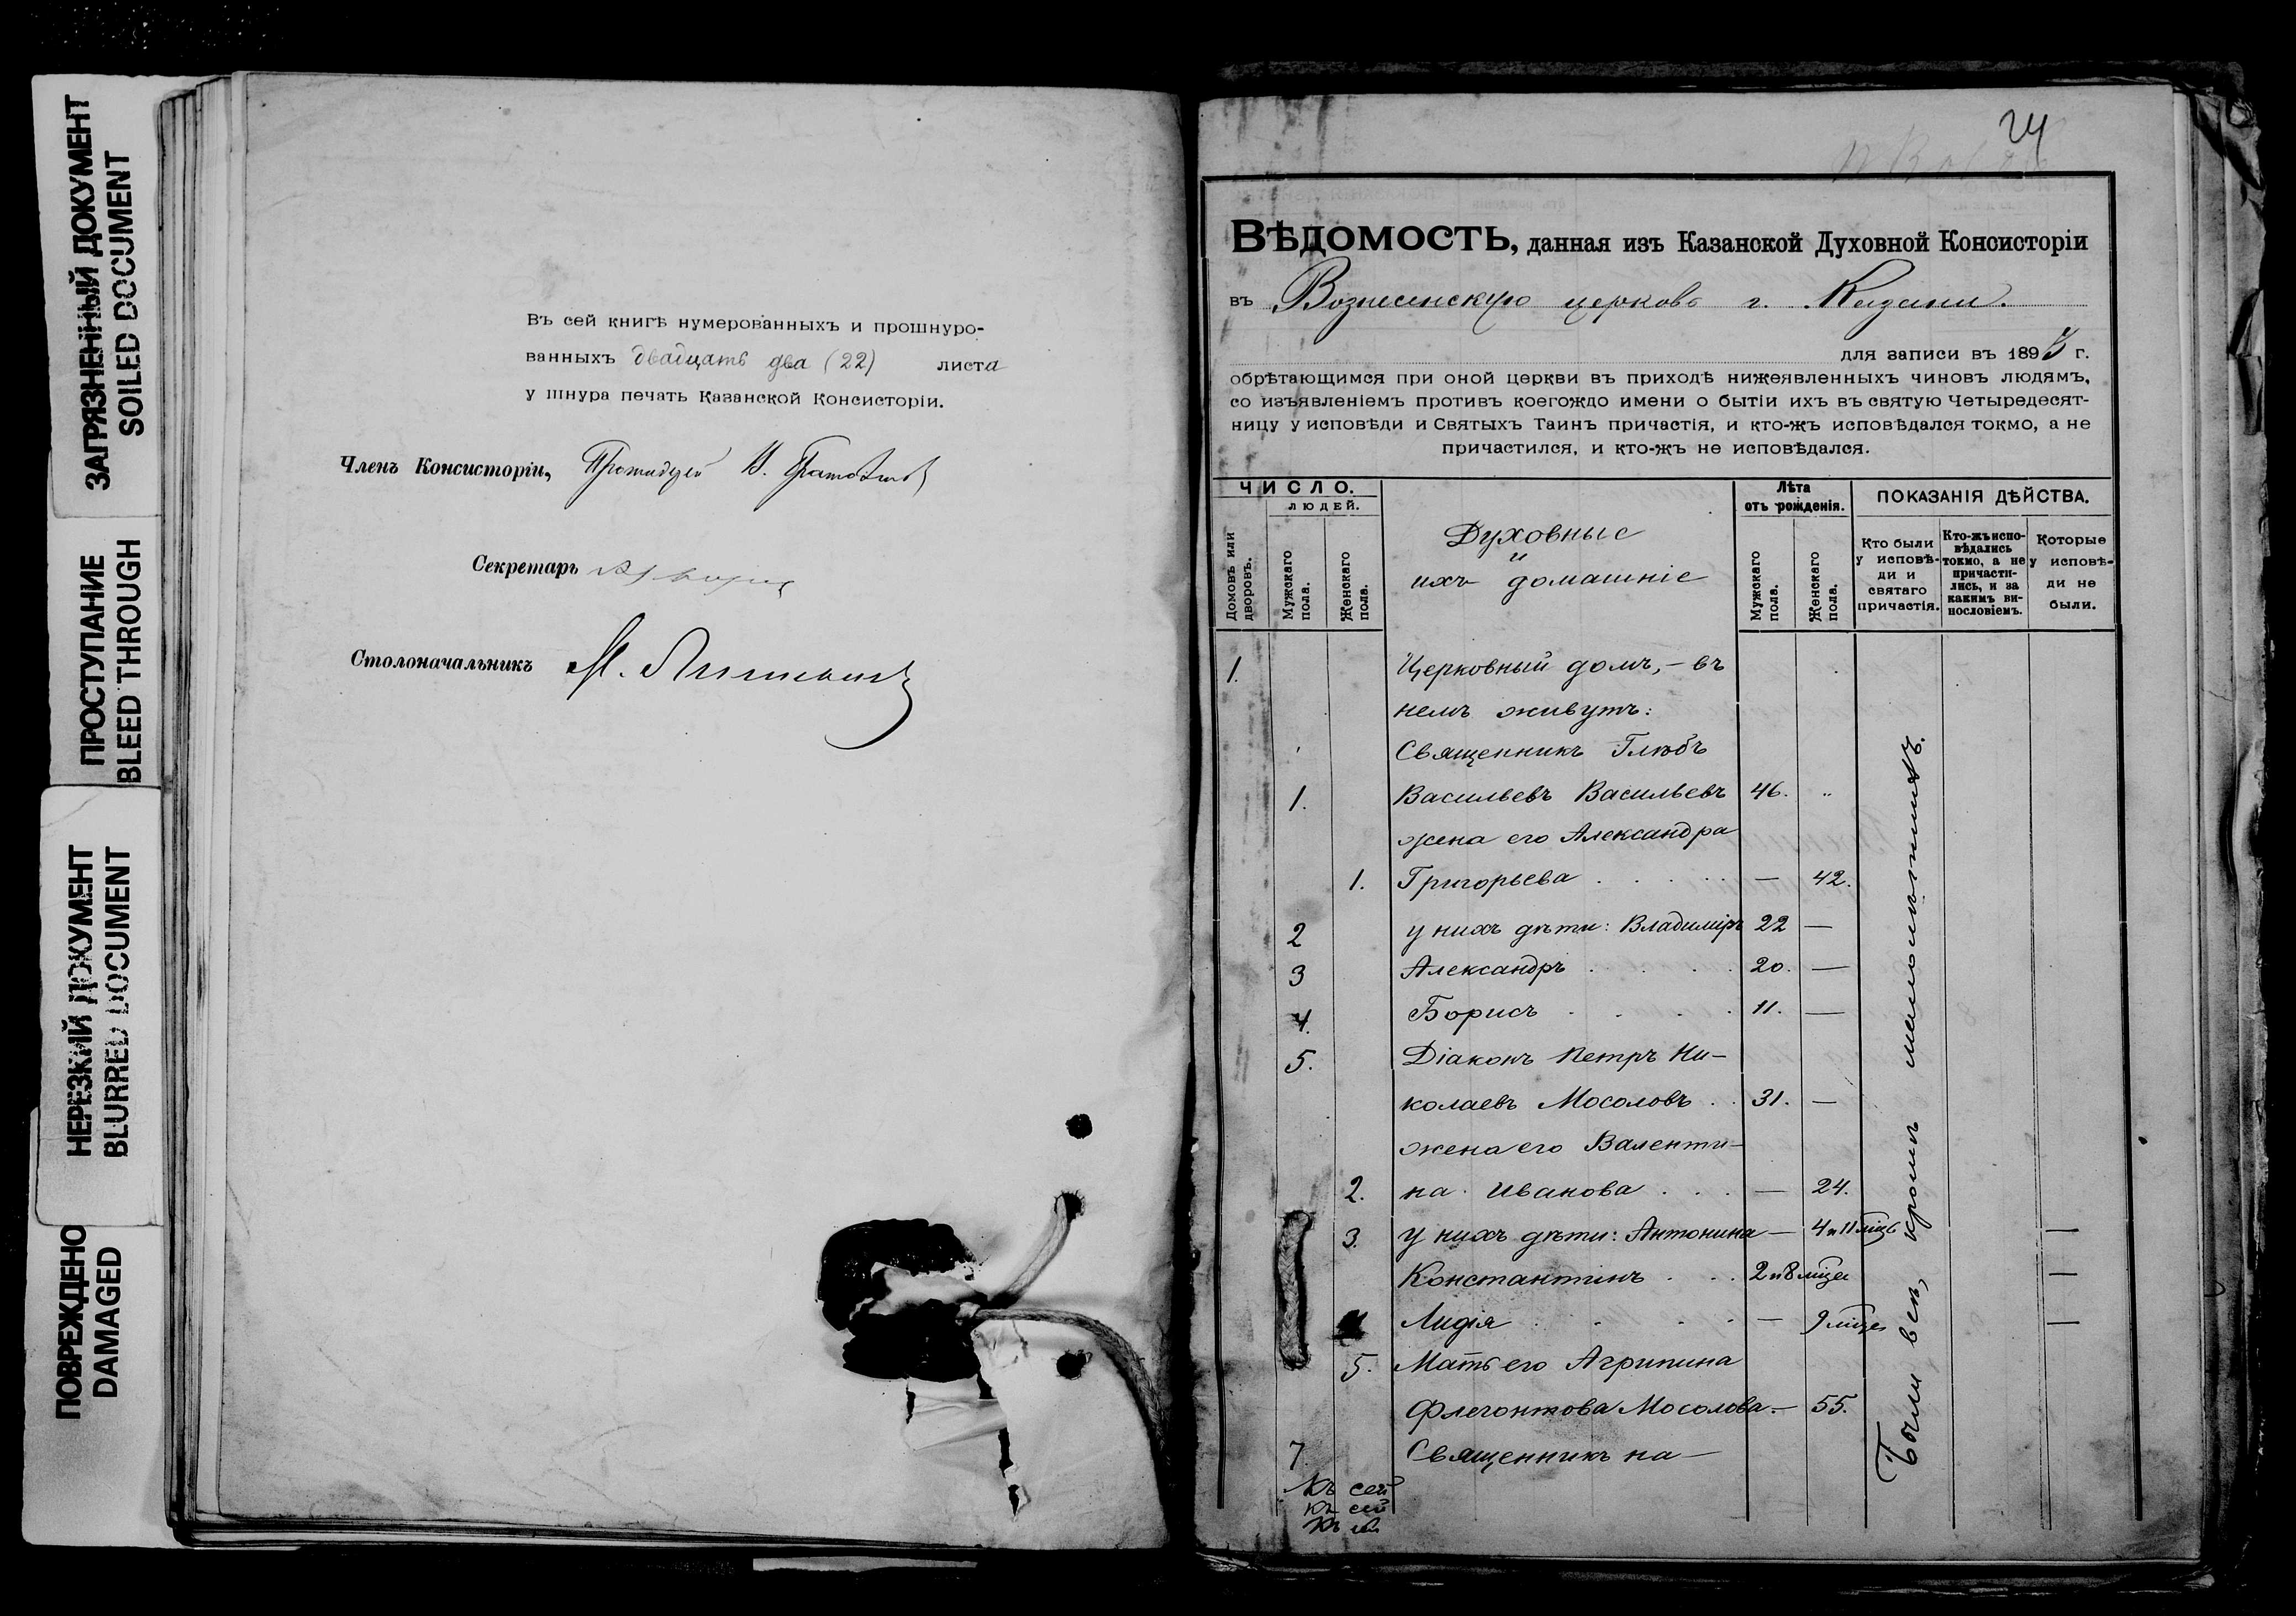 ЗАГРЯЗНЕННЫЙ ДОКУМЕНТ
SOILED DOCUMENT
ПРОСТУПАНИЕ
BLEED THROUGH
НЕРЕЗКИЙ ДОКУМЕНТ
BLURRED DOCUMENT
ПОВРЕЖДЕНО
DAMAGED
Въ сей книгѣ нумерованныхъ и прошнуро-
ванныхъ двадцать два (22) листа
у шнура печать Казанской Консисторіи.
Членъ Консисторіи,
Секретарь
Столоначальникъ М.
24
ВѢДОМОСТЬ, данная изъ Казанской Духовной Консисторіи
въ Вознесенскую церковь г. Казани.
для записи въ 189 г.
обрѣтающимся при оной церкви въ приходѣ нижеявленныхъ чиновъ людямъ,
со изъявленіемъ противъ коегождо имени о бытіи ихъ въ святую Четыредесят-
ницу у исповѣди и Святыхъ Таинъ причастія, и кто-жъ исповѣдался токмо, а не
причастился, и кто-жъ не исповѣдался.
ЧИСЛО.
людей.
Домовъ или дворовъ.
Мужскаго пола.
Женскаго пола.
Духовные
и
ихъ домашніе
Лѣта
отъ рожденія.
Мужскаго пола.
Женскаго пола.
ПОКАЗАНІЯ ДѢЙСТВА.
Кто были
у исповѣ-
ди и
святаго
причастія.
Кто-жъ испо-
вѣдались
токмо, а не
причасти-
лись, и за
какимъ ви-
нословіемъ.
Которые
у исповѣ-
ди не
были.
1. Церковный домъ, – въ
немъ живутъ:
Священникъ Глѣбъ
1. Васильевъ Васильевъ 46. „
жена его Александра
1. Григорьева . . . . — 42.
2 у нихъ дѣти: Владиміръ 22 —
3 Александръ . . . . 20. —
4. Борисъ . . . . 11. —
5. Діаконъ Петръ Ни-
колаевъ Мосоловъ . . 31. —
жена его Валенти-
2. на Иванова . . . — 24.
3. у нихъ дѣти: Антонина — 4 и 11 мѣц. —
Константинъ . . . 2 и 8 мѣцев —
Лидія . . . . — 9 мѣцев —
5. Мать его Агрипина
Флегонтова Мосолова. — 55.
7 Священникъ на-
Были всѣ, кромѣ малолѣтнихъ.
Къ сей
къ сей